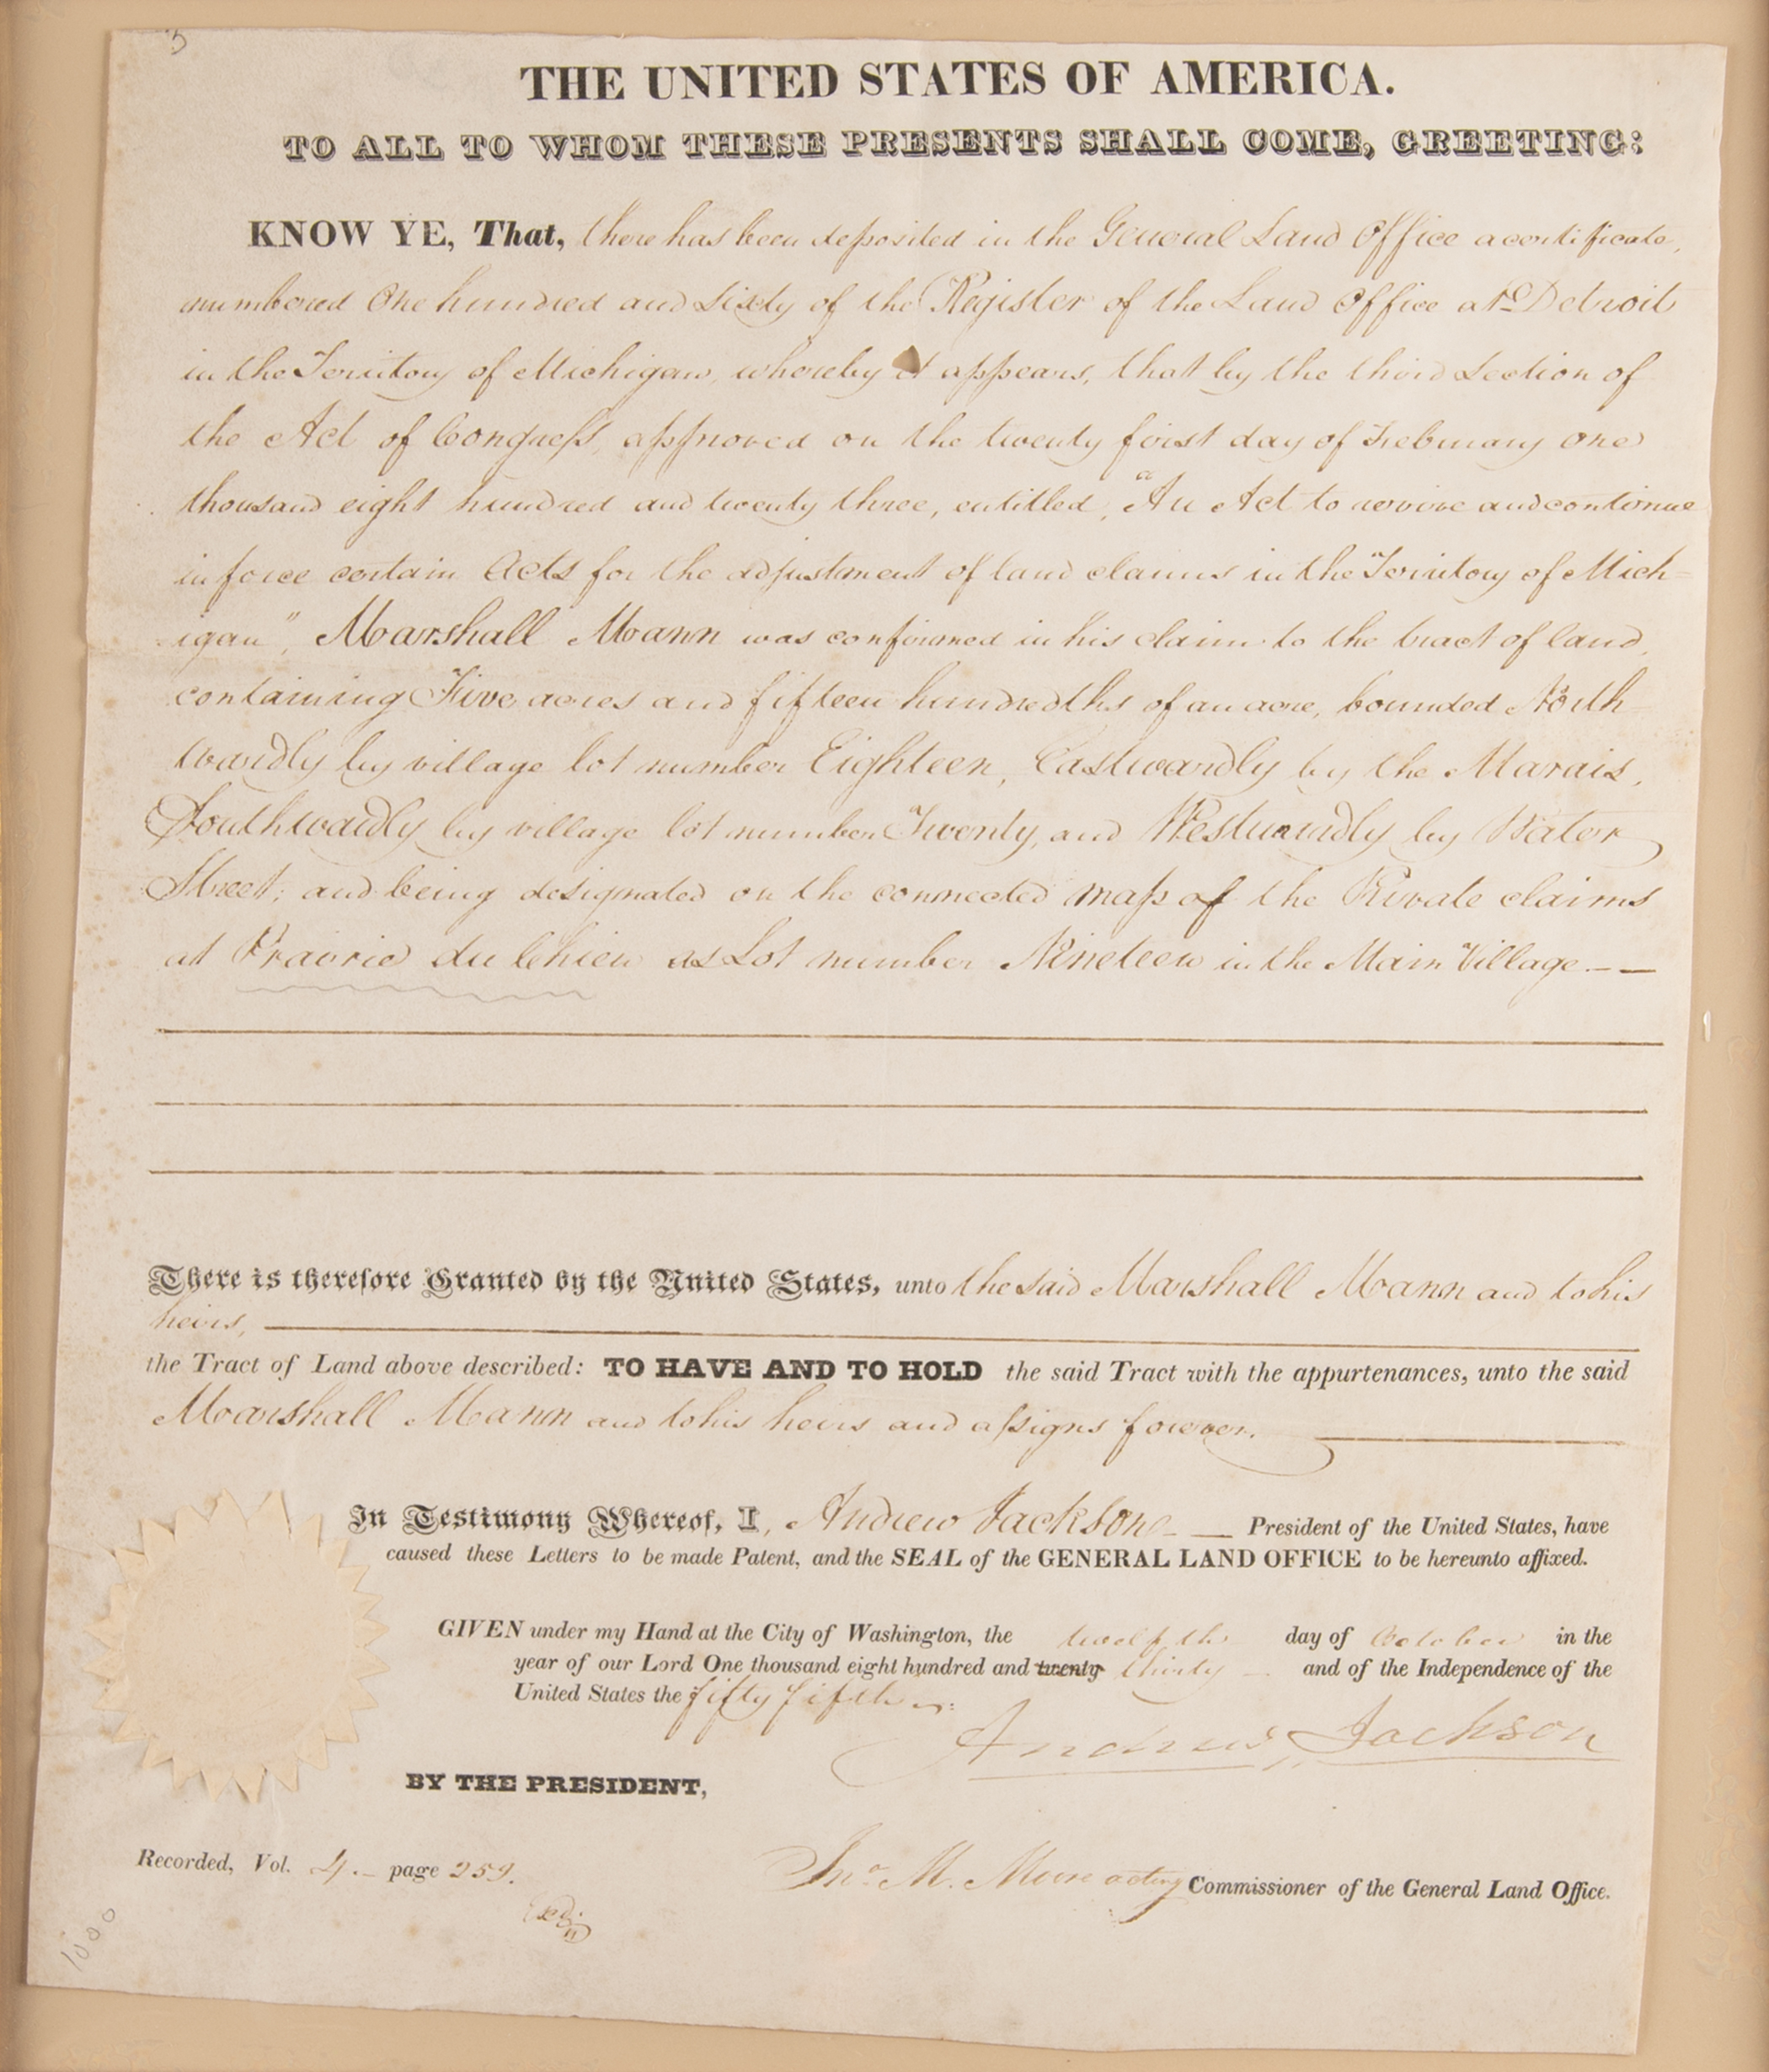 5
THE UNITED STATES OF AMERICA.
TO ALL TO WHOM THESE PRESENTS SHALL COME, GREETING:
KNOW YE, That, there has been deposited in the General Land Office a certificate,
numbered One hundred and Sixty of the Register of the Land Office at Detroit
in the Territory of Michigan, whereby it appears, that by the third Section of
the Act of Congress, approved on the twenty first day of February one
thousand eight hundred and twenty three, entitled, "An Act to revive and continue
in force certain Acts for the adjustment of land claims in the Territory of Mich=
igan", Marshall Mann was confirmed in his claim to the tract of land,
containing Five acres and fifteen hundredths of an acre, bounded North
wardly by village lot number Eighteen, Eastwardly by the Marais,
Southwardly by village lot number Twenty, and Westwardly by Water
Street; and being designated on the connected map of the Private claims
at Prairie du Chien as Lot number Nineteen in the Main Village.
There is therefore Granted by the United States, unto the said Marshall Mann and to his
heirs,
the Tract of Land above described: TO HAVE AND TO HOLD the said Tract with the appurtenances, unto the said
Marshall Mann and to his heirs and assigns forever.
In Testimony Whereof, I, Andrew Jackson President of the United States, have
caused these Letters to be made Patent, and the SEAL of the GENERAL LAND OFFICE to be hereunto affixed.
GIVEN under my Hand at the City of Washington, the twelfth day of October in the
year of our Lord One thousand eight hundred and twenty thirty and of the Independence of the
United States the fifty fifth
Andrew Jackson
BY THE PRESIDENT,
Recorded, Vol. 4. page 259.
Jno. M. Moore acting Commissioner of the General Land Office.
1000